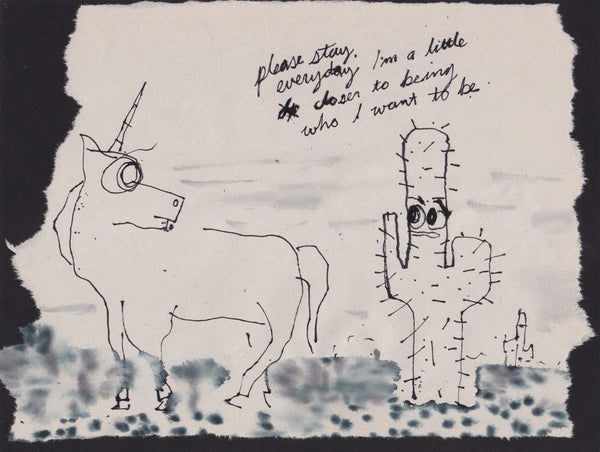 please stay.
everyday I'm a little
closer to being
who I want to be